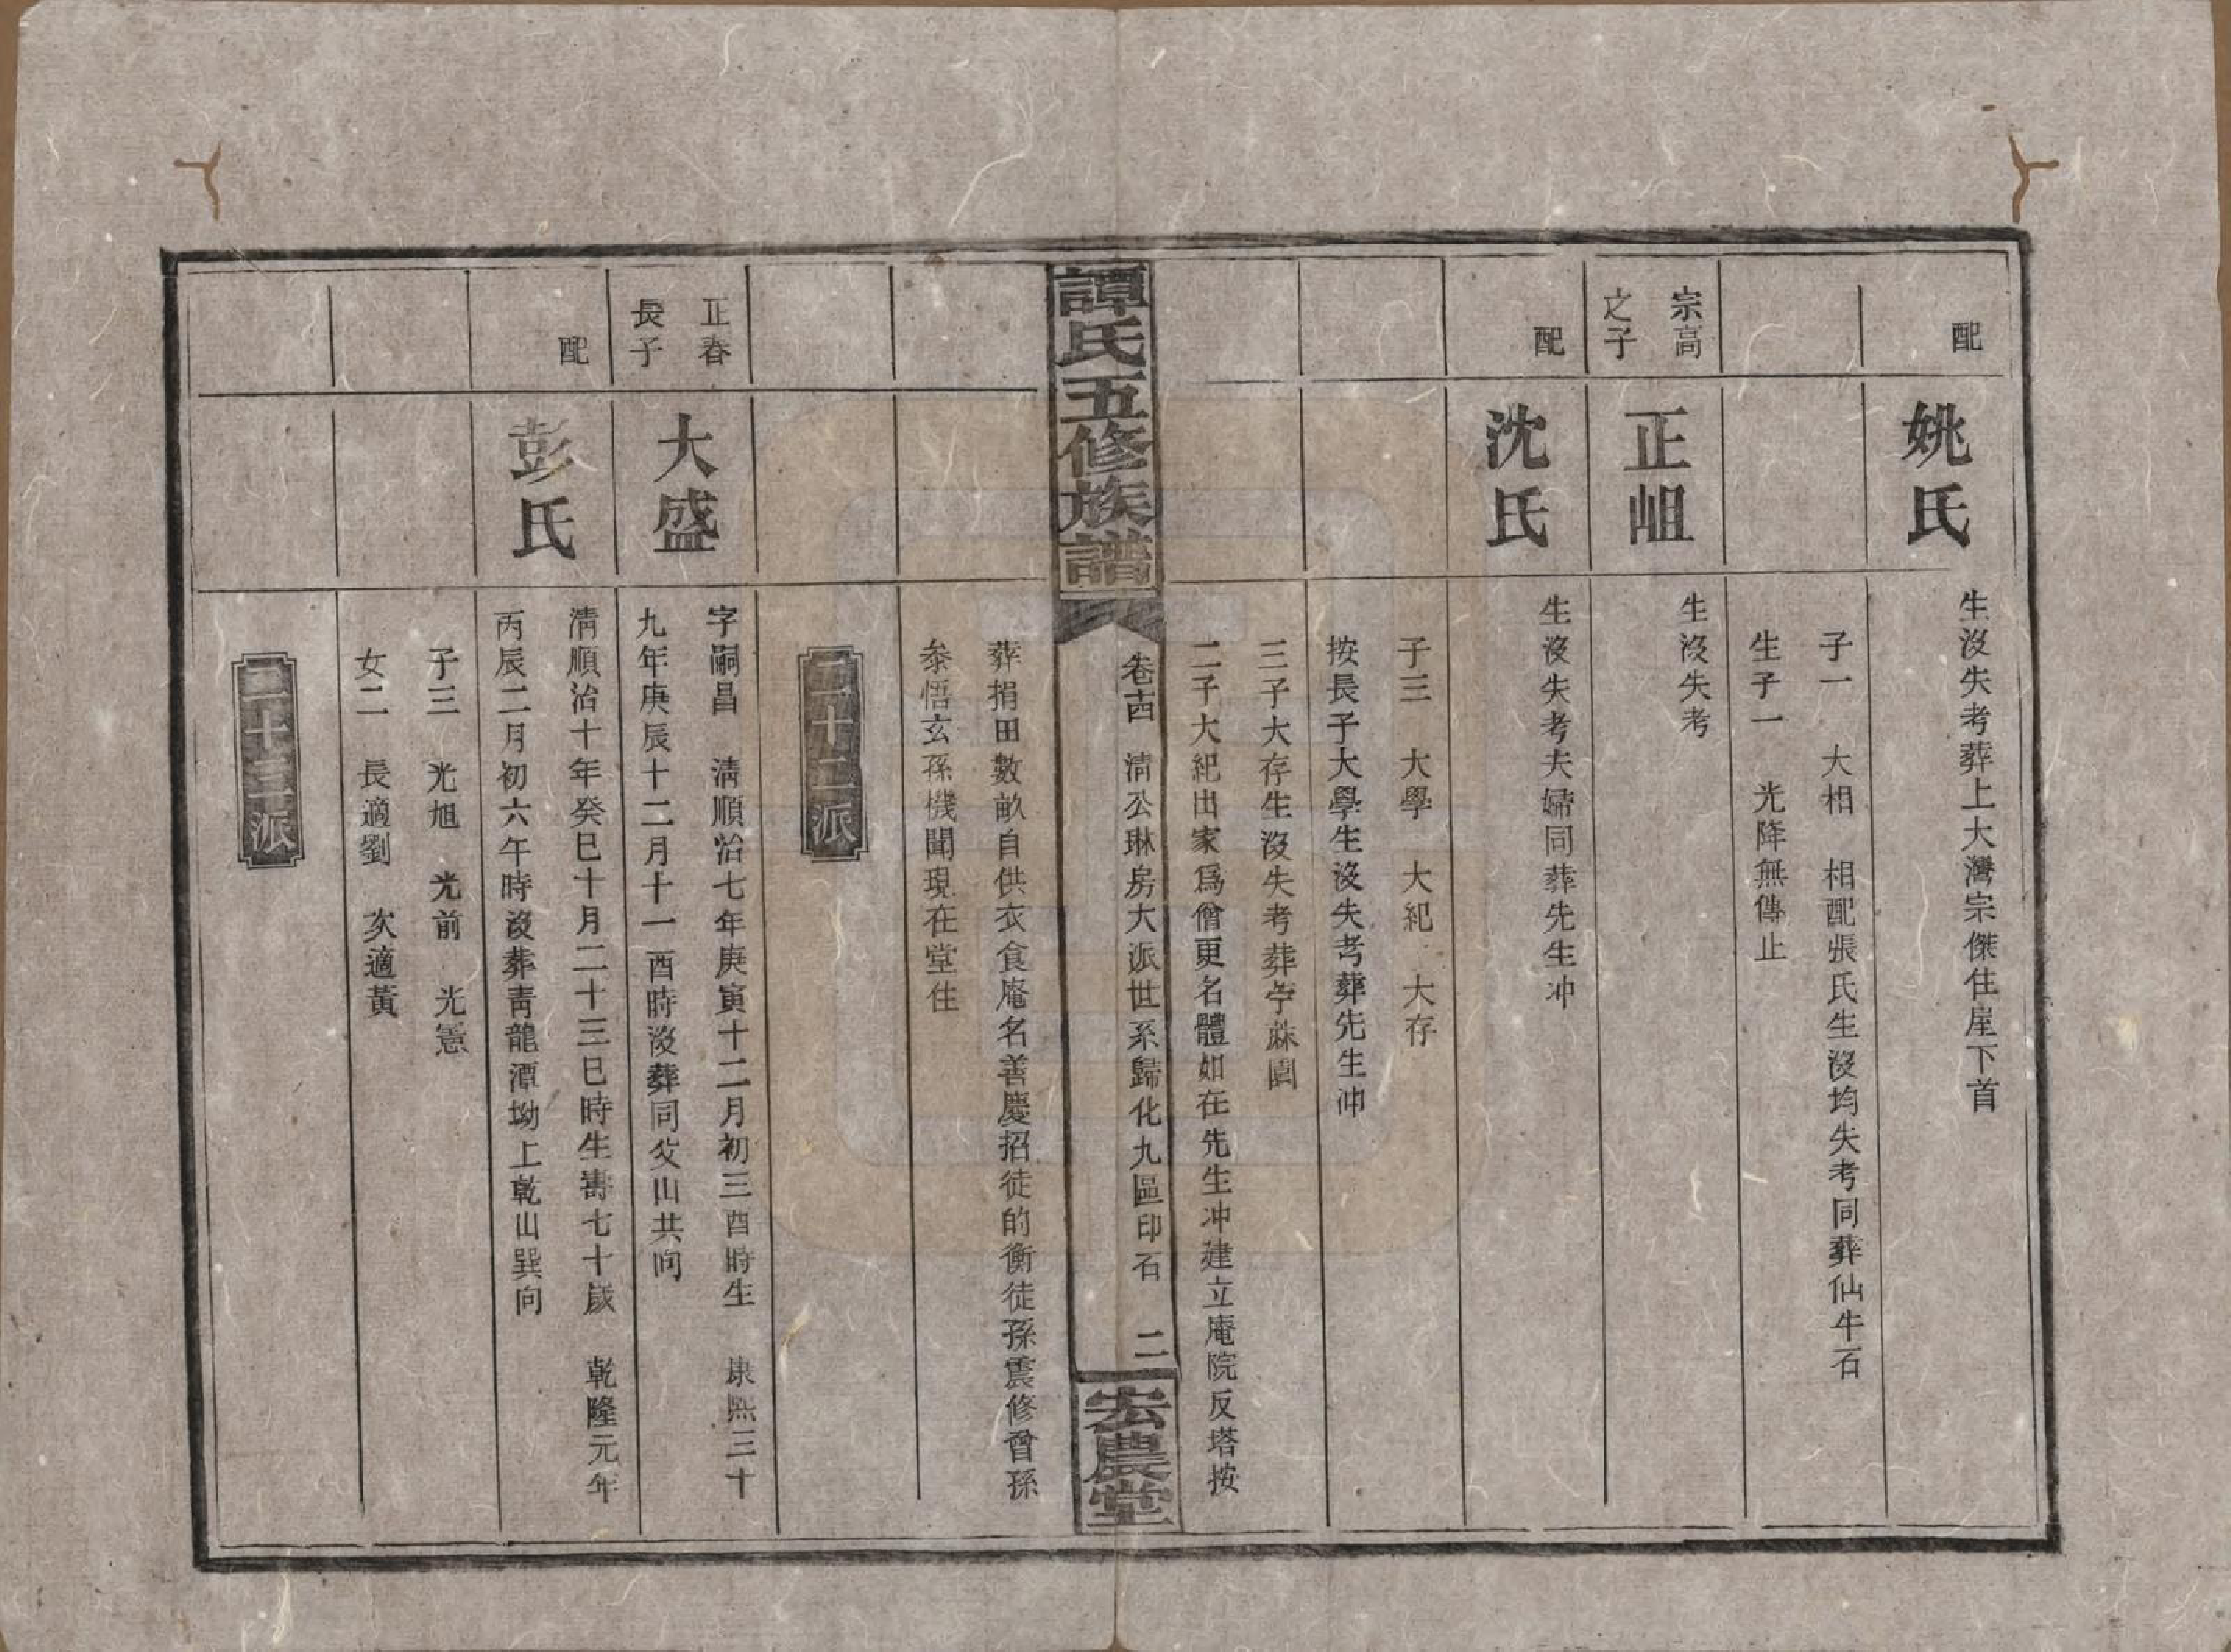 配
姚氏
生沒失考葬上大灣宗傑住屋下首
子一　大相　相配張氏生沒均失考同葬仙牛石
生子一　光降無傳止
宗高
之子
正岨
生沒失考
配
沈氏
生沒失考夫婦同葬先生冲
子三　大學　大紀　大存
按長子大學生沒失考葬先生冲
三子大存生沒失考葬苧蔴園
二子大紀出家爲僧更名體如在先生冲建立庵院反塔按
譚氏五修族譜
卷十四　清公琳房大派世系歸化九區印石　二
宏農堂
葬捐田數畝自供衣食庵名善慶招徒的衡徒孫震修曾孫
叅悟玄孫機聞現在堂住
二十二派
正春
長子
大盛
字嗣昌　清順治七年庚寅十二月初三酉時生　康熙三十
九年庚辰十二月十一酉時沒葬同父山共向
配
彭氏
清順治十年癸巳十月二十三巳時生壽七十歲　乾隆元年
丙辰二月初六午時沒葬靑龍潭坳上乾山巽向
子三　光旭　光前　光憲
女二　長適劉　次適黃
二十三派